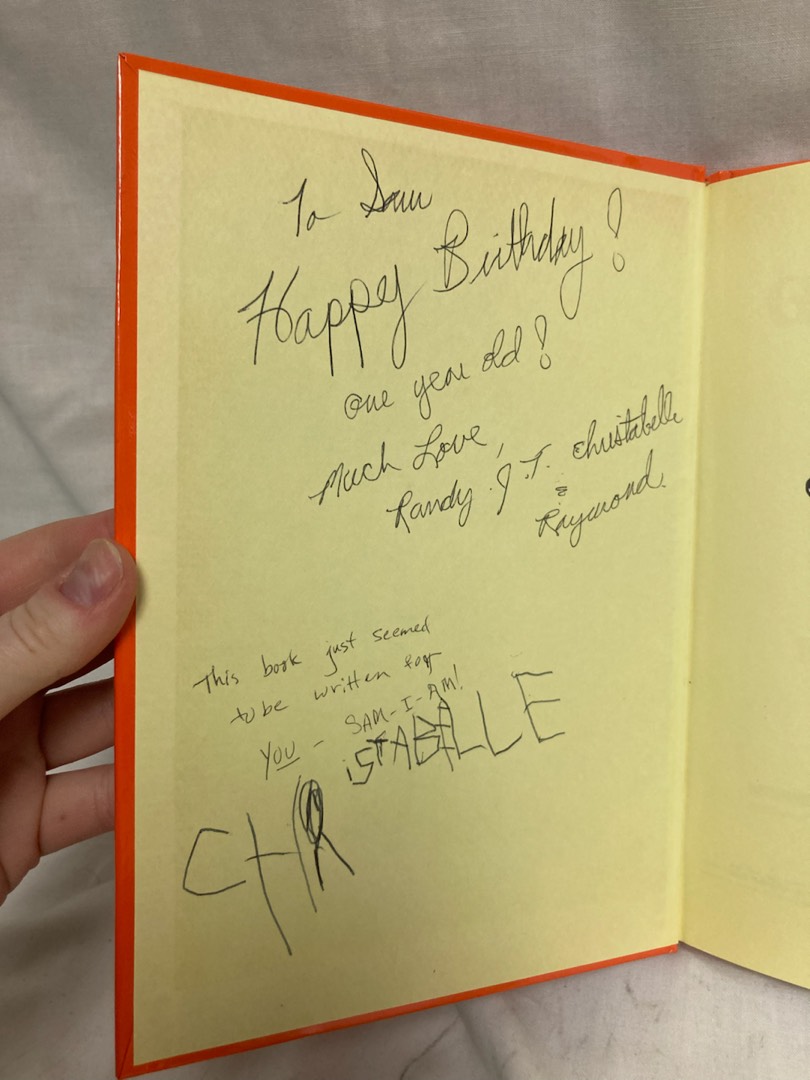 To Sam
Happy Birthday!
one year old!
Much Love,
Randy J.T. Christabelle
&
Raymond.
This book just seemed
to be written for
YOU - SAM-I-AM!
CHRiSTABELLE